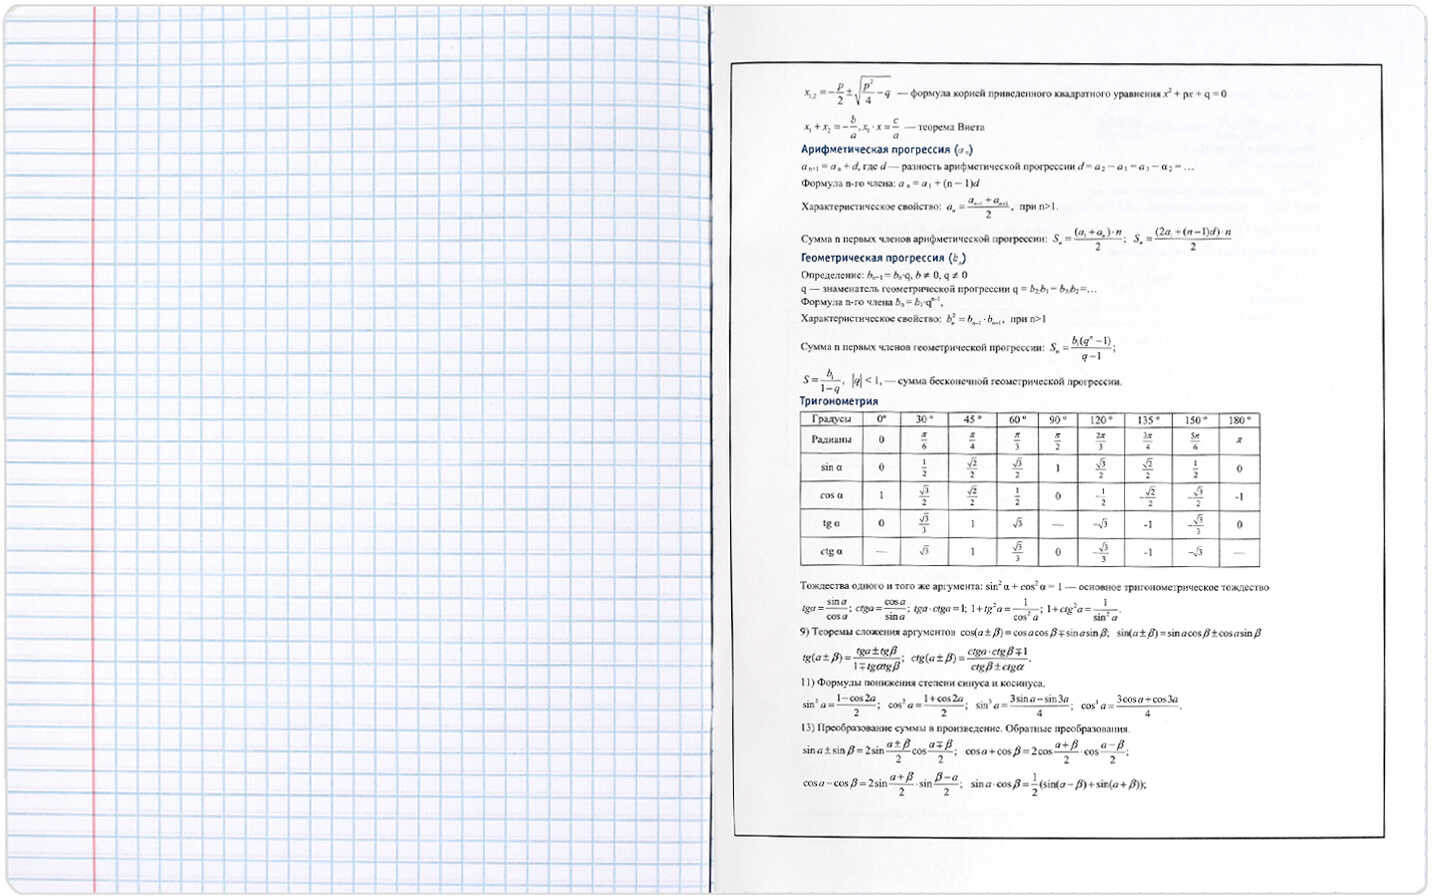 x₁,₂ = −p/2 ± √(p²/4 − q) — формула корней приведенного квадратного уравнения x² + px + q = 0
x₁ + x₂ = −b/a, x₁ · x = c/a — теорема Виета
Арифметическая прогрессия (aₙ)
aₙ₊₁ = aₙ + d, где d — разность арифметической прогрессии d = a₂ − a₁ = a₃ − a₂ = …
Формула n-го члена: aₙ = a₁ + (n − 1)d
Характеристическое свойство: aₙ = (aₙ₋₁ + aₙ₊₁)/2, при n>1.
Сумма n первых членов арифметической прогрессии: Sₙ = (a₁ + aₙ) · n/2; Sₙ = (2a₁ + (n − 1)d) · n/2
Геометрическая прогрессия (bₙ)
Определение: bₙ₊₁ = bₙ·q, b ≠ 0, q ≠ 0
q — знаменатель геометрической прогрессии q = b₂:b₁ = b₃:b₂ =…
Формула n-го члена bₙ = b₁·qⁿ⁻¹,
Характеристическое свойство: bₙ² = bₙ₋₁ · bₙ₊₁, при n>1
Сумма n первых членов геометрической прогрессии: Sₙ = b₁(qⁿ − 1)/(q − 1);
S = b₁/(1 − q), |q| < 1, — сумма бесконечной геометрической прогрессии.
Тригонометрия
Градусы 0° 30° 45° 60° 90° 120° 135° 150° 180°
Радианы 0 π/6 π/4 π/3 π/2 2π/3 3π/4 5π/6 π
sin α 0 1/2 √2/2 √3/2 1 √3/2 √2/2 1/2 0
cos α 1 √3/2 √2/2 1/2 0 -1/2 -√2/2 -√3/2 -1
tg α 0 √3/3 1 √3 — -√3 -1 -√3/3 0
ctg α — √3 1 √3/3 0 -√3/3 -1 -√3 —
Тождества одного и того же аргумента: sin² α + cos² α = 1 — основное тригонометрическое тождество
tga = sin a/cos a; ctga = cos a/sin a; tga · ctga = 1; 1 + tg²a = 1/cos² a; 1 + ctg²a = 1/sin² a.
9) Теоремы сложения аргументов cos(a ± β) = cos a cos β ∓ sin a sin β; sin(a ± β) = sin a cos β ± cos a sin β
tg(a ± β) = (tga ± tgβ)/(1 ∓ tgatgβ); ctg(a ± β) = (ctga · ctgβ ∓ 1)/(ctgβ ± ctga).
11) Формулы понижения степени синуса и косинуса.
sin² a = (1 − cos 2a)/2; cos² a = (1 + cos 2a)/2; sin³ a = (3 sin a − sin 3a)/4; cos³ a = (3 cos a + cos 3a)/4.
13) Преобразование суммы в произведение. Обратные преобразования.
sin a ± sin β = 2 sin (a ± β)/2 cos (a ∓ β)/2; cos a + cos β = 2 cos (a + β)/2 · cos (a − β)/2;
cos a − cos β = 2 sin (a + β)/2 · sin (β − a)/2; sin a · cos β = 1/2 (sin(a − β) + sin(a + β));